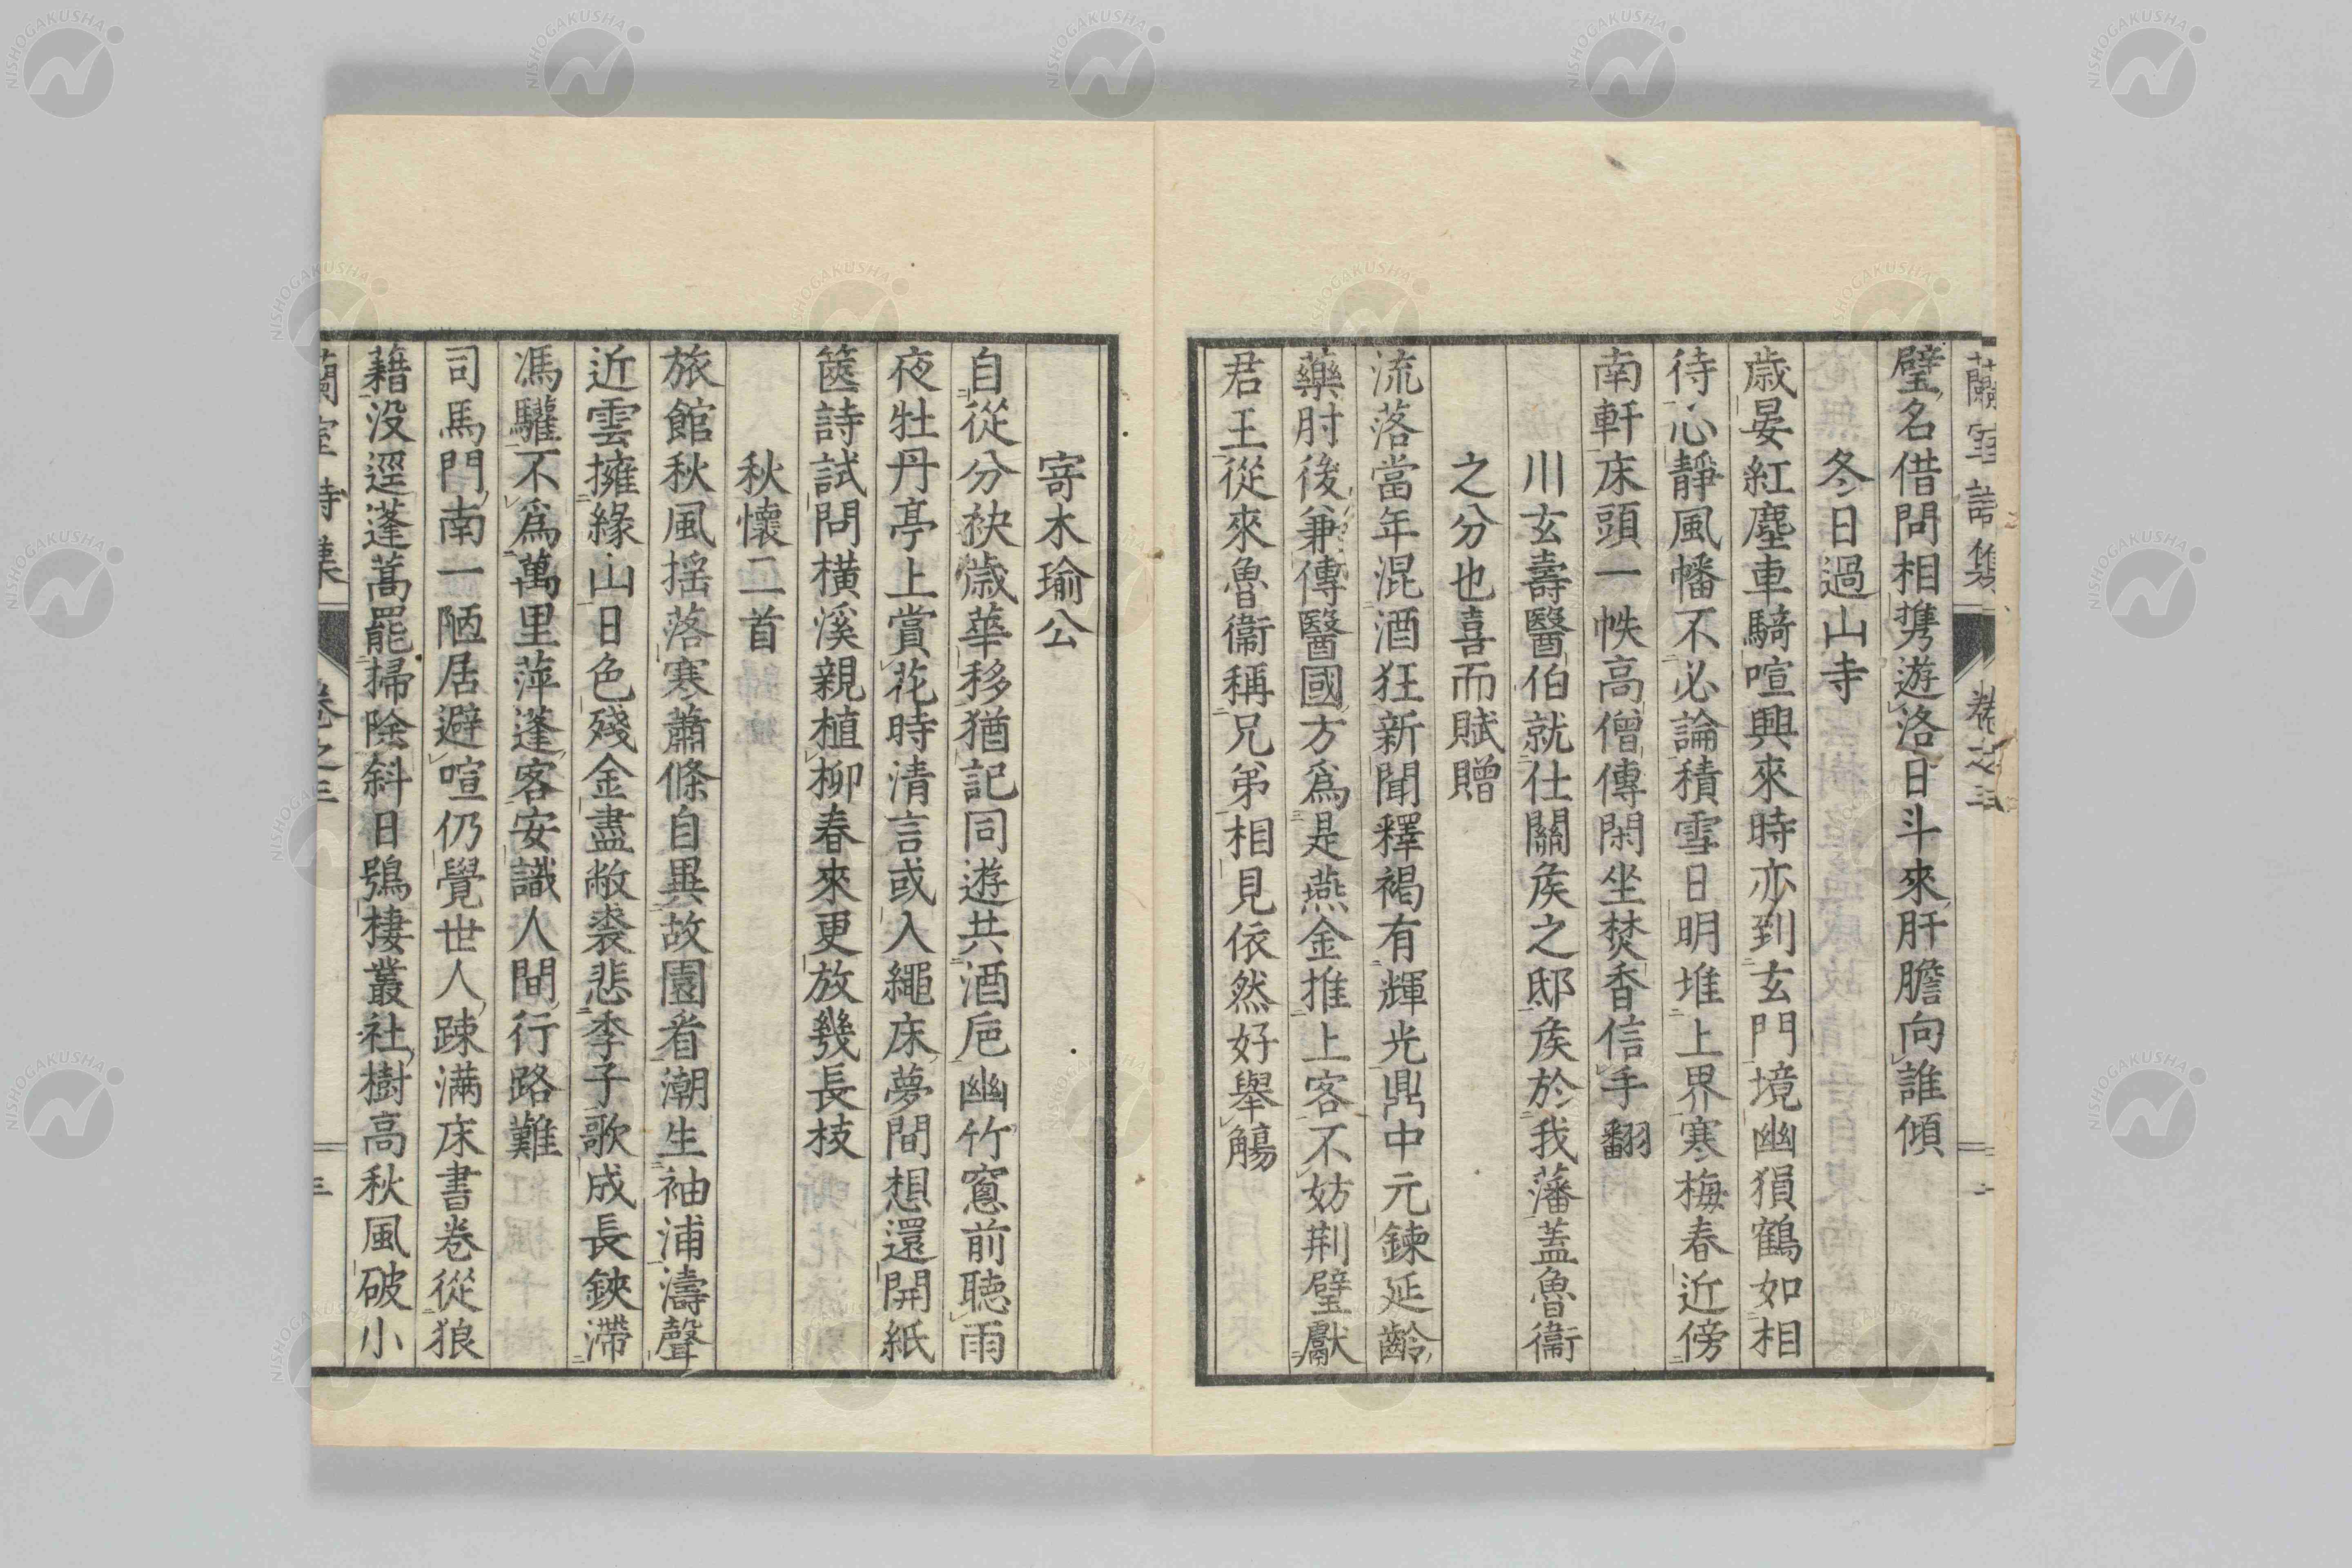 蘭室詩集 卷之三 二
璧名借問相携遊洛日斗來肝膽向誰傾
冬日過山寺
歲晏紅塵車騎喧興來時亦到玄門境幽猿鶴如相
待心靜風幡不必論積雪日明堆上界寒梅春近傍
南軒床頭一帙高僧傳閑坐焚香信手翻
川玄壽醫伯就仕關矦之邸矦於我藩蓋魯衞
之分也喜而賦贈
流落當年混酒狂新聞釋褐有輝光鼎中元鍊延齡
藥肘後兼傳醫國方爲是燕金推上客不妨荆璧獻
君王從來魯衞稱兄弟相見依然好舉觴
寄木瑜公
自從分袂歲華移猶記同遊共酒巵幽竹窻前聽雨
夜牡丹亭上賞花時清言或入繩床夢間想還開紙
篋詩試問橫溪親植柳春來更放幾長枝
秋懷二首
旅館秋風揺落寒蕭條自異故園看潮生袖浦濤聲
近雲擁緣山日色殘金盡敝裘悲季子歌成長鋏滯
馮驩不爲萬里萍蓬客安識人間行路難
司馬門南一陋居避喧仍覺世人踈滿床書卷從狼
藉没逕蓬蒿罷掃除斜日鴞棲叢社樹高秋風破小
蘭室詩集 卷之三 三